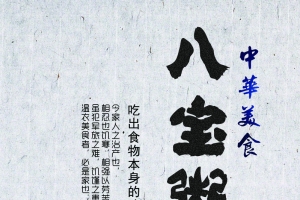 中華美食
八宝粥
吃出食物本身的
今家人之治产也，
相忍也饥寒，相强以劳苦
虽犯军旅之难，饥馑之患
温衣美食者，必是家也。